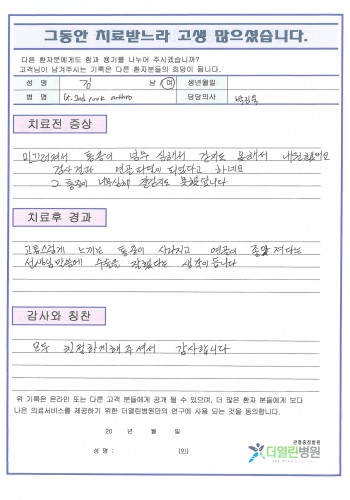 그동안 치료받느라 고생 많으셨습니다.
다른 환자분에게도 힘과 용기를 나누어 주시겠습니까?
고객님이 남겨주시는 기록은 다른 환자분들의 희망이 됩니다.
성 명 김 남 여 생년월일
병 명 담당의사
치료전 증상
미끄러져서 통증이 너무 심해서 걷지도 못해서 내원했어요
검사결과 연골파열이 되었다고 하네요
그 통증이 너무심해 걸을지도 못했답니다
치료후 경과
고통스럽게 느끼는 통증이 사라지고
선생님 덕분에 수술은 잘됐다는 생각이 듭니다
감사와 칭찬
모두 친절하게해주셔서 감사합니다
위 기록은 온라인 또는 다른 고객 분들에게 공개 될 수 있으며, 더 많은 환자 분들에게 보다
나은 의료서비스를 제공하기 위한 더열린병원만의 연구에 사용 되는 것을 동의합니다.
20 년 월 일
성명 : (인)
관절중점병원
더열린병원